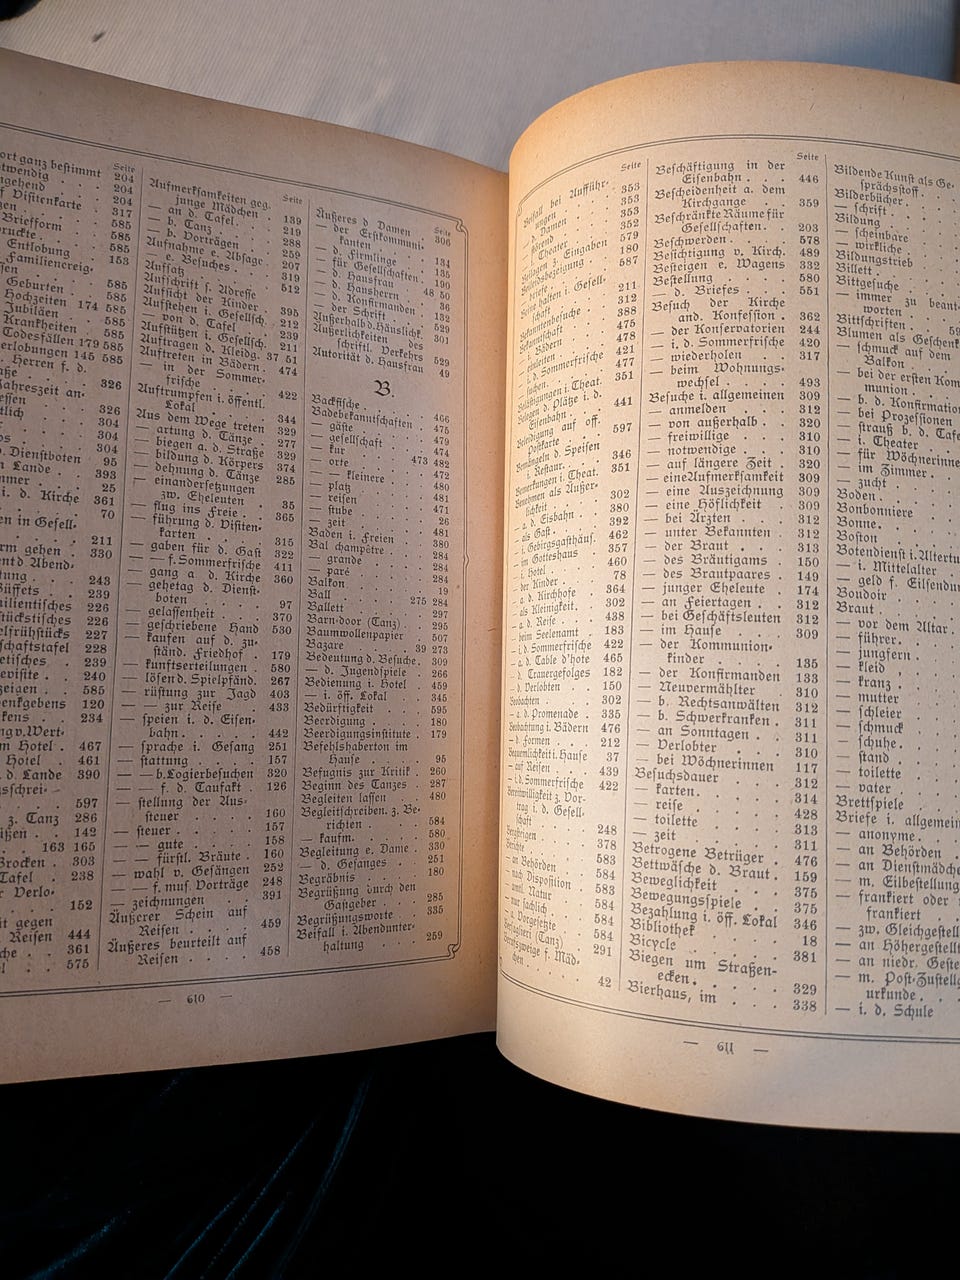 ort ganz bestimmt 204
twendig . . . 204
ngehend . . . 204
f Visitenkarte . 204
gen. . . . 317
Briefform . . 585
ruckte. . . 585
Entlobung . . 585
Familienereig-
Geburten . . 585
Hochzeiten 174 585
Jubiläen . . 585
Krankheiten . 585
Todesfällen 179 585
erlobungen 145 585
Herren f. d.
326
Jahreszeit an-
326
tlich . . . 304
304
304
b. Dienstboten 95
Lande . . . 393
25
i. d. Kirche 361
70
en in Gesell-
211
rm gehen . 330
Abend-
tung . . . 243
Büffets . . 239
ilientisches 226
stückstisches 226
elfrühstücks 227
schaftstafel 228
etisches . . 239
visite . . . 240
zeigen . . . 585
enkgebens 120
kens . . . 234
ng v. Wert-
m Hotel . 467
Hotel . . 461
d. Lande 390
sschrei-
. . . 597
z. Tanz 286
ißen . . 142
. 163 165
Brocken . 303
Tafel . . 238
r Verlo-
. . . 152
it gegen
Reisen 444
che . . . 361
. . . 575
Seite
Aufmerksamkeiten geg.
junge Mädchen . 139
— an d. Tafel. . . 219
— b. Tanz . . . 288
— b. Vorträgen . 259
Aufnahme e. Absage. 207
— e. Besuches. . . 319
Aufsatz . . . 512
Aufschrift s. Adresse
Aufsicht der Kinder . 395
Aufstehen i. Gesellsch. 212
— von d. Tafel . . 239
Aufstützen i. Gesellsch. 211
Auftragen d. Kleidg. 37 51
Auftreten in Bädern . 474
— in der Sommer-
frische . . . 422
Auftrumpfen i. öffentl.
Lokal . . . 344
Aus dem Wege treten 329
— artung d. Tänze . 277
— biegen a. d. Straße 329
— bildung d. Körpers 374
— dehnung d. Tänze 285
— einandersetzungen
zw. Eheleuten . 35
— flug ins Freie . . 365
— führung d. Visiten-
karten . . . 315
— gaben für d. Gast 322
— — f. Sommerfrische 411
— gang a. d. Kirche 360
— gehetag d. Dienst-
boten . . . 97
— gelassenheit . . 370
— geschriebene Hand 530
— kaufen auf d. zu-
ständ. Friedhof . 179
— kunftserteilungen . 580
— lösen d. Spielpfänd. 267
— rüstung zur Jagd 403
— — zur Reise . . 433
— speien i. d. Eisen-
bahn . . . . 442
— sprache i. Gesang 251
— stattung . . . 157
— — b. Logierbesuchen 320
— — f. d. Taufakt . 126
— stellung der Aus-
steuer . . . 160
— steuer . . . . 157
— — gute . . . 158
— — fürstl. Bräute . 160
— wahl v. Gesängen 252
— — f. mus. Vorträge 248
— zeichnungen . . 391
Äußerer Schein auf
Reisen . . . 459
Äußeres beurteilt auf
Reisen . . . 458
Seite
Äußeres d Damen . 306
— der Erstkommuni-
kanten . . . 134
— d. Firmlinge . . 135
— für Gesellschaften. 190
— d. Hausfrau . 48 50
— d. Hausherrn . . 36
— d. Konfirmanden . 132
— der Schrift . . 529
Außerhalb d. Häuslichk. 301
Äußerlichkeiten des
schriftl. Verkehrs 529
Autorität d. Hausfrau 49
B.
Backfische . . . 466
Badebekanntschaften . 475
— gäste . . . . 479
— gesellschaft . . 474
— kur . . . 473 482
— orte . . . . 472
— — kleinere . . 480
— platz . . . . 481
— reisen . . . 481
— stube . . . . 471
— zeit . . . . 26
Baden i. Freien . . 481
Bal champêtre . . 380
— grande . . . 284
— paré . . . . 284
Balkon . . . . 19
Ball . . . . 275 284
Ballett . . . . 297
Barn-door (Tanz) . . 295
Baumwollenpapier . 507
Bazare . . . 39 273
Bedeutung d. Besuche. 309
— d. Jugendspiele . 266
Bedienung i. Hotel . 459
— i. öff. Lokal . . 345
Bedürftigkeit . . . 595
Beerdigung . . . 180
Beerdigungsinstitute . 179
Befehlshaberton im
Hause . . . 95
Befugnis zur Kritik . 260
Beginn des Tanzes . 287
Begleiten lassen . . 480
Begleitschreiben. z. Be-
richten . . . 584
— kaufm. . . . 580
Begleitung e. Dame . 330
— d. Gesanges . . 251
Begräbnis . . . 180
Begrüßung durch den
Gastgeber . . 285
Begrüßungsworte . . 335
Beifall i. Abendunter-
haltung . . . 259
— 610 —
Seite
Beifall bei Aufführ-
ungen . . . 353
Damen . . . 353
353
— i. Theater . . 352
Beilagen z. Eingaben 579
Beileidsbezeigung . 180
briefe . . . 587
halten i. Gesell-
schaft . . . 211
Bekannte . . . 312
Bekanntenbesuche . 388
475
Bädern . . . 478
421
— i. d. Sommerfrische 477
suchen . . . 351
Belästigungen i. Theat.
Belegen d. Plätze i. d.
Eisenbahn . . 441
Beleidigung auf off.
Postkarte . . 597
Bemängeln d. Speisen
i. Restaur. . . 346
Bemerkungen i. Theat. 351
Benehmen als Äußer-
lichkeit . . . 302
— a. d. Eisbahn . . 380
— als Gast . . . 392
— i. Gebirgsgasthäus. 462
— im Gotteshaus . 357
— i. Hotel . . . 460
— der Kinder . . 78
— a. d. Kirchhofe . 364
— als Kleinigkeit . 302
— a. d. Reise . . 438
— beim Seelenamt . 183
— i. d. Sommerfrische 422
— a. d. Table d'hote 465
— d. Trauergefolges 182
— d. Verlobten . . 150
Beobachten . . . 302
— a. d. Promenade . 335
Beobachtung i. Bädern 476
— d. Formen . . 212
Bequemlichkeit i. Hause 37
— auf Reisen . . 439
— i. d. Sommerfrische 422
Bereitwilligkeit z. Vor-
trag i. d. Gesell-
schaft . . . 248
378
Berichte . . . 583
— an Behörden . . 584
— nach Disposition . 583
— amtl. Natur . . 584
— nur sachlich . . 584
— a. Vorgesetzte . 584
(Tanz) . 291
Berufszweige f. Mäd-
chen . . . . 42
Seite
Beschäftigung in der
Eisenbahn . . . 446
Bescheidenheit a. dem
Kirchgange . . 359
Beschränkte Räume für
Gesellschaften . . 203
Beschwerden . . . 578
Besichtigung v. Kirch. 489
Besteigen e. Wagens 332
Bestellung . . . 580
— d. Briefes . . 551
Besuch der Kirche
and. Konfession . 362
— der Konservatorien 244
— i. d. Sommerfrische 420
— wiederholen . . 317
— beim Wohnungs-
wechsel . . . 493
Besuche i. allgemeinen 309
— anmelden . . . 312
— von außerhalb . . 320
— freiwillige . . . 310
— notwendige . . 310
— auf längere Zeit . 320
— eine Aufmerksamkeit 309
— eine Auszeichnung 309
— eine Höflichkeit . 309
— bei Ärzten . . . 312
— unter Bekannten . 312
— der Braut . . . 313
— des Bräutigams . 150
— des Brautpaares . 149
— junger Eheleute . 174
— an Feiertagen . . 312
— bei Geschäftsleuten 312
— im Hause . . . 309
— der Kommunion-
kinder . . . 135
— der Konfirmanden 133
— Neuvermählter . 310
— b. Rechtsanwälten 312
— b. Schwerkranken . 311
— an Sonntagen . . 311
— Verlobter . . . 310
— bei Wöchnerinnen 117
Besuchsdauer . . . 312
— karten. . . . 314
— reise . . . . 428
— toilette . . . 313
— zeit . . . . 311
Betrogene Betrüger . 476
Bettwäsche d. Braut . 159
Beweglichkeit . . . 375
Bewegungsspiele . . 375
Bezahlung i. öff. Lokal 346
Bibliothek . . . 18
Bicycle . . . . 381
Biegen um Straßen-
ecken. . . . 329
Bierhaus, im . . . 338
Bildende Kunst als Ge-
sprächsstoff .
Bilderbücher. . .
— schrift . .
Bildung . . .
— scheinbare
— wirkliche
Bildungstrieb
Billett. . .
Bittgesuche .
— immer zu beant-
worten . .
Bittschriften . .
Blumen als Geschenk
— schmuck auf dem
Balkon .
— bei der ersten Kom-
munion . .
— b. d. Konfirmation
— bei Prozessionen
— strauß b. d. Tafel
— i. Theater .
— für Wöchnerinnen
— im Zimmer .
— zucht . .
Boden . . .
Bonbonniere .
Bonne. . .
Boston . .
Botendienst i. Altertum
— i. Mittelalter
— geld f. Eilsendun-
Boudoir . .
Braut . . .
— vor dem Altar .
— führer. .
— jungfern .
— kleid . .
— kranz . .
— mutter .
— schleier .
— schmuck .
— schuhe. .
— stand . .
— toilette .
— vater . .
Brettspiele .
Briefe i. allgemeinen
— anonyme. .
— an Behörden .
— an Dienstmädchen
— m. Eilbestellung
— frankiert oder
frankiert .
— zw. Gleichgestell-
— an Höhergestellte
— an niedr. Gestellte
— m. Post-Zustellg-
urkunde. .
— i. d. Schule
— 611 —